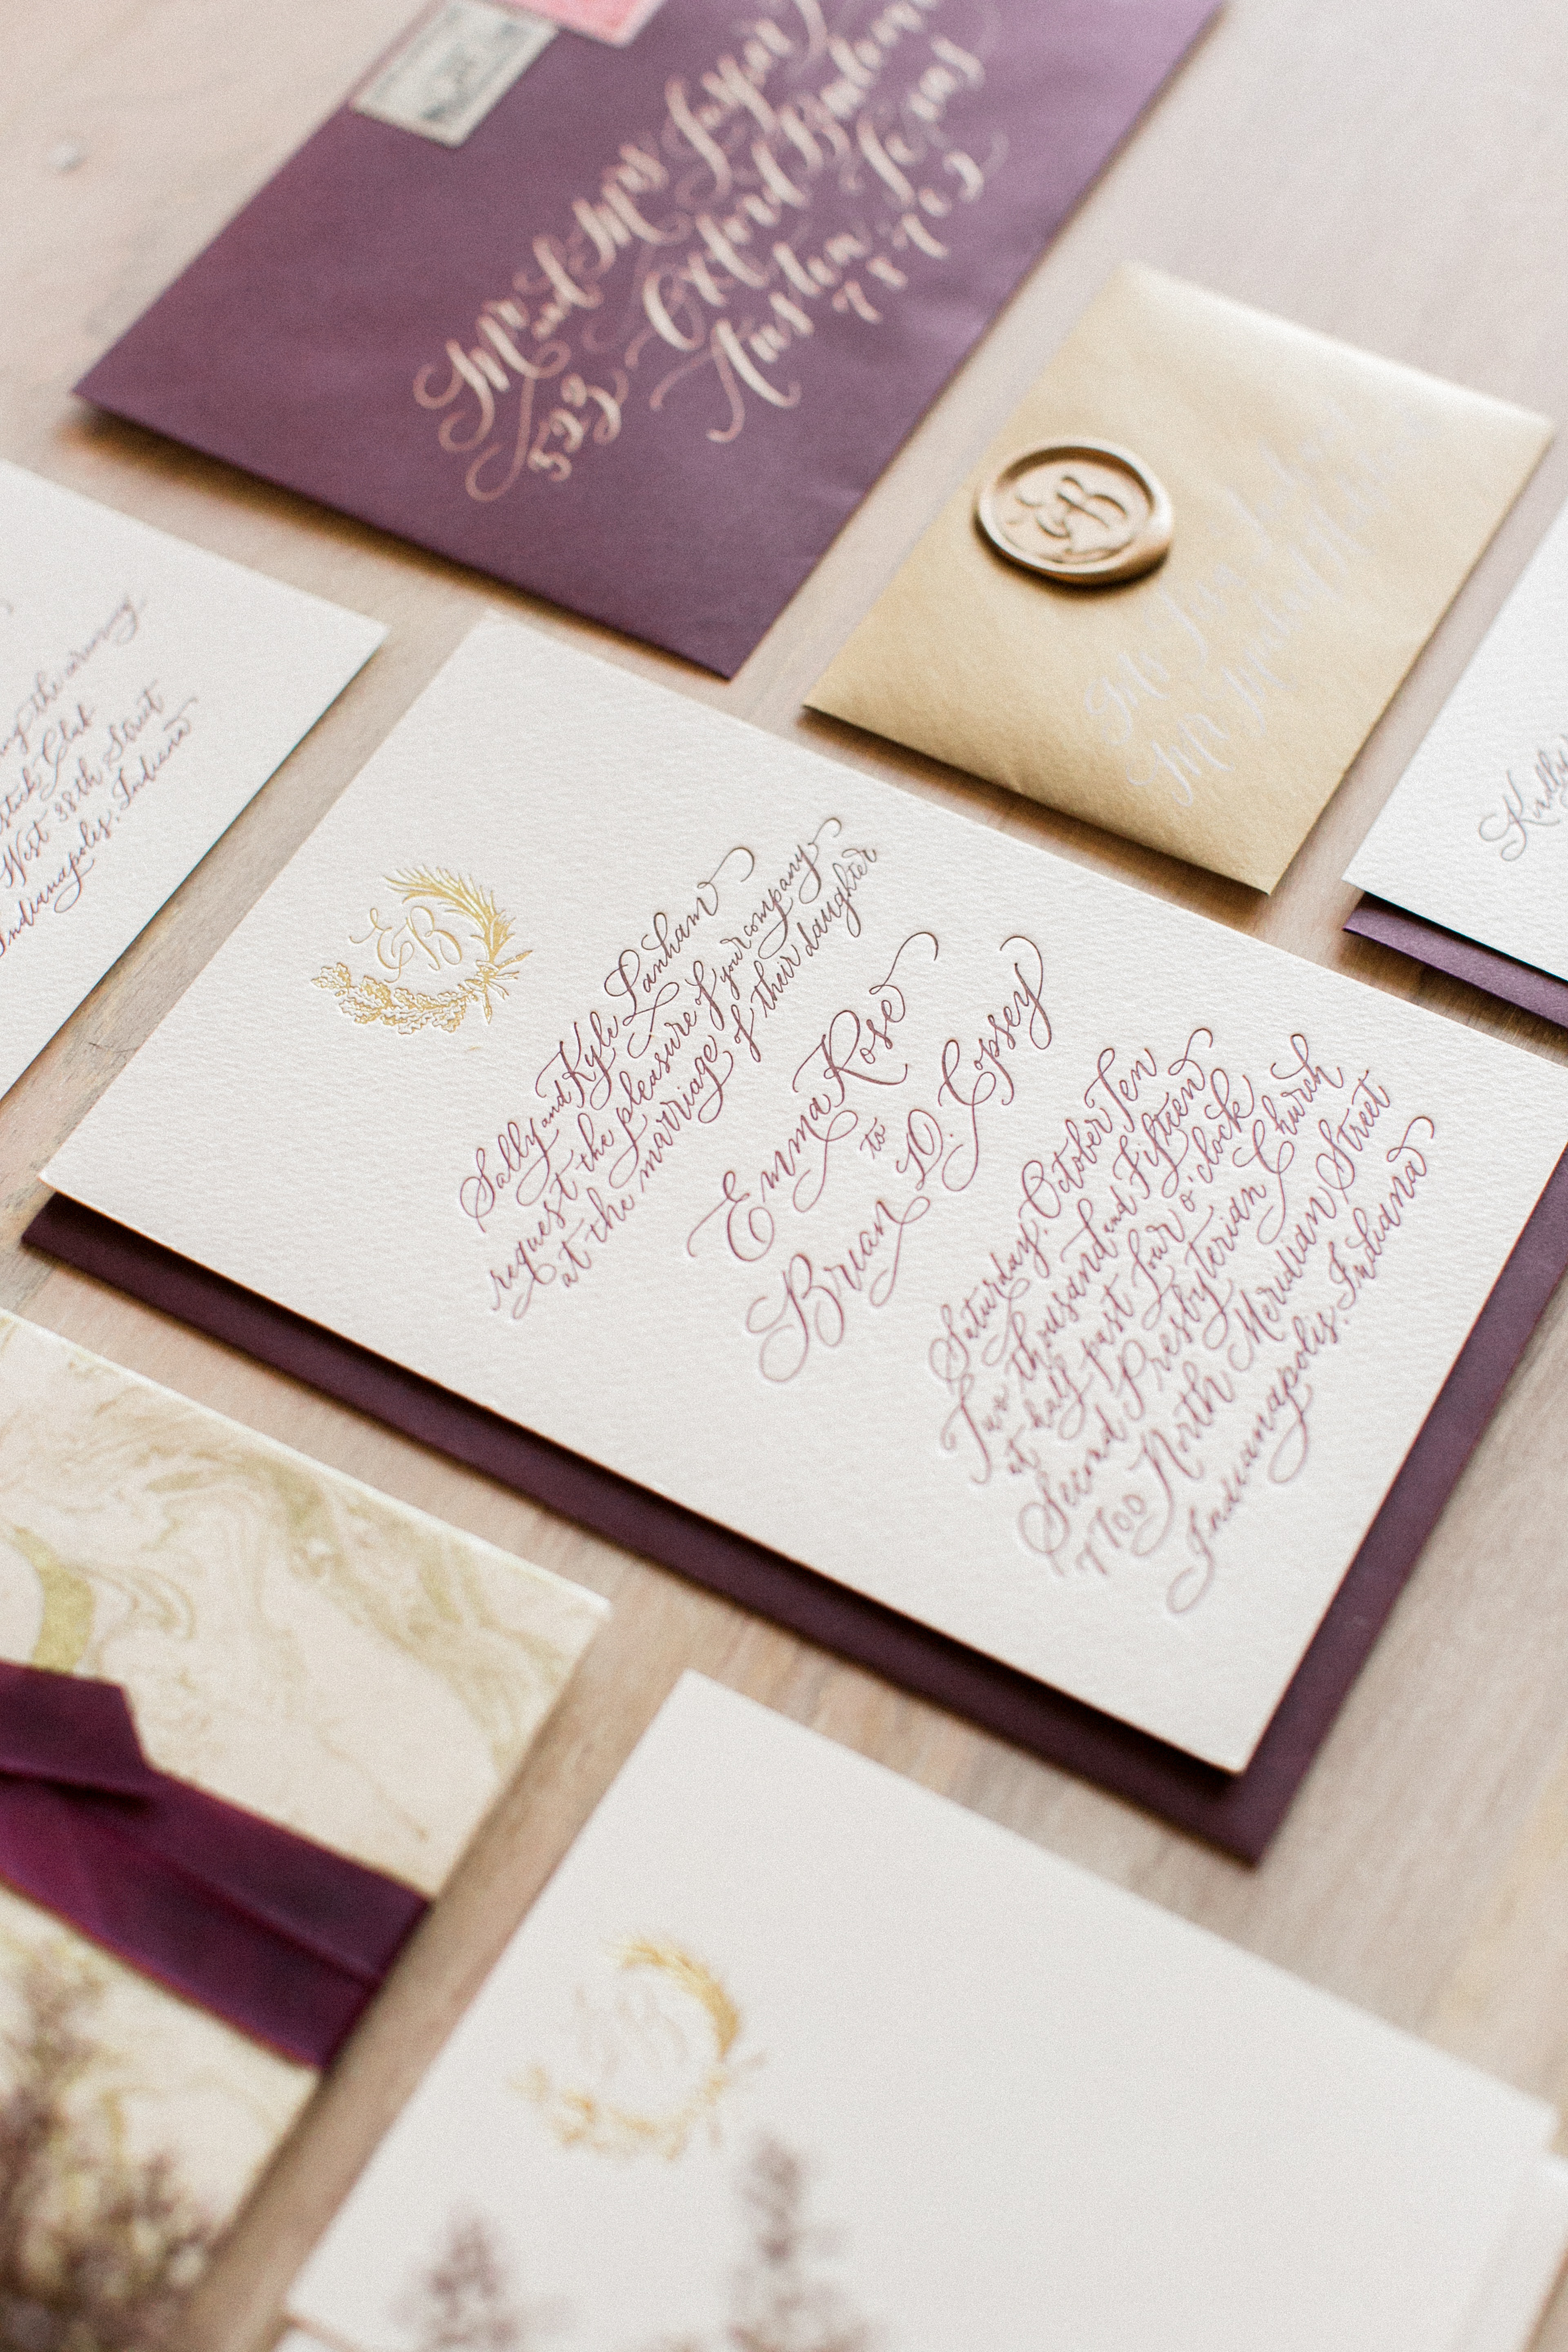 Mr and Mrs
529 Oxford
Austin Texas
78702
EB
Ms
Mr
ing the evening
Club
West 38th Street
Indianapolis, Indiana
Kindly
EB
Sally and Kyle Lanham
request the pleasure of your company
at the marriage of their daughter
Emma Rose
to
Brian D. Copsey
Saturday, October Ten
Two thousand and Fifteen
at half past four o'clock
Second Presbyterian Church
7700 North Meridian Street
Indianapolis, Indiana